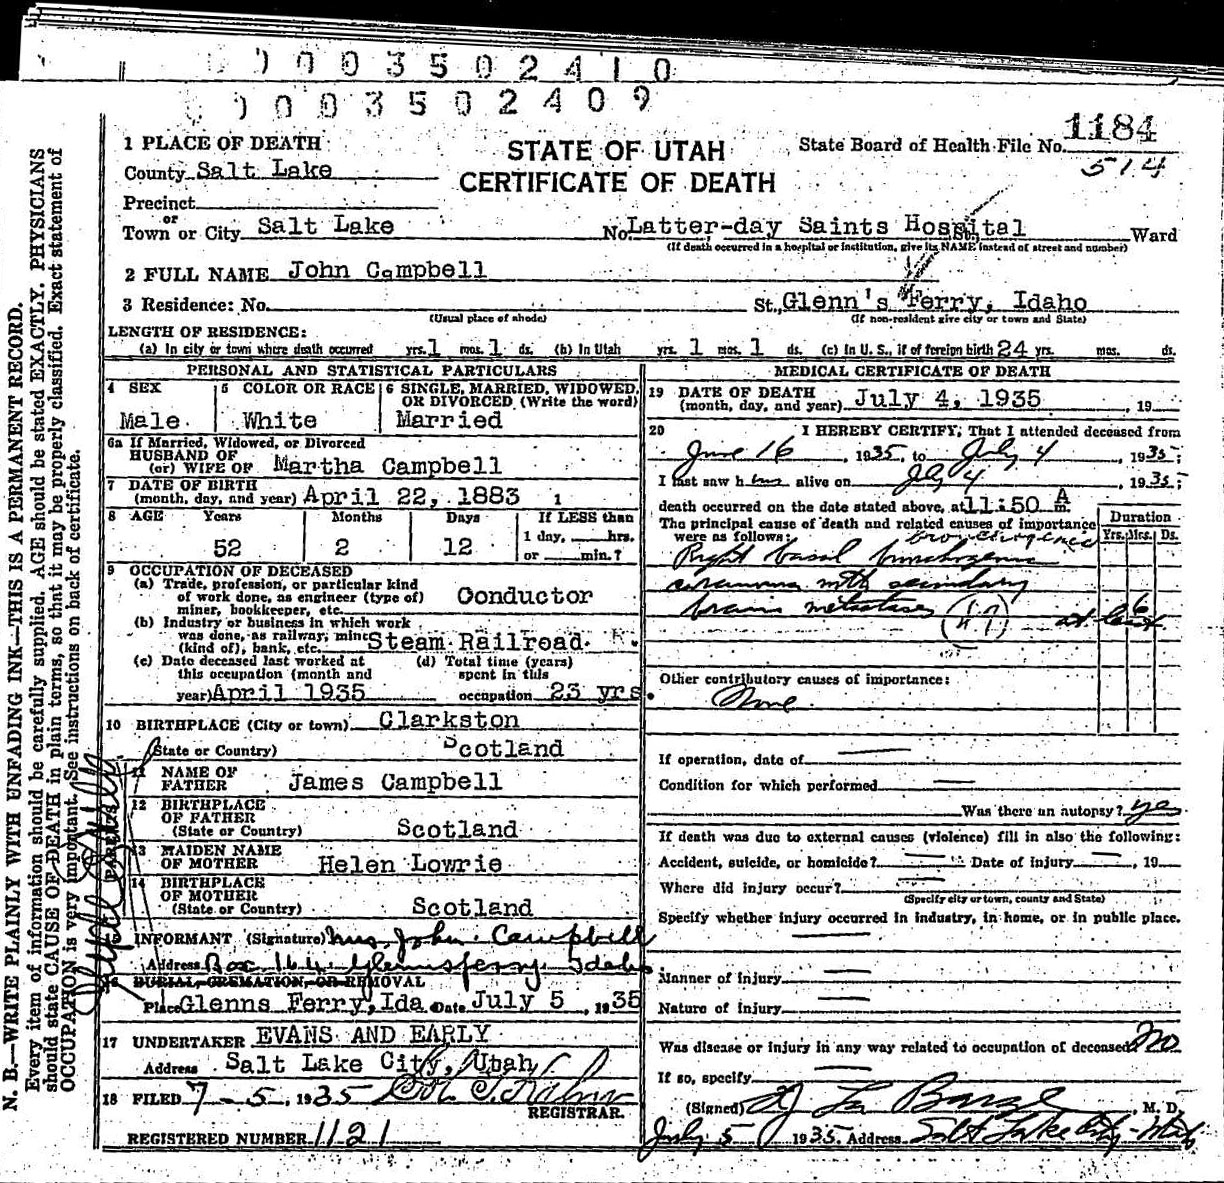 0003502410
0003502409
1184
514
STATE OF UTAH
CERTIFICATE OF DEATH
State Board of Health File No.
1 PLACE OF DEATH
County Salt Lake
Precinct
or
Town or City Salt Lake No. Latter-day Saints Hospital St., Ward
(If death occurred in a hospital or institution, give its NAME instead of street and number)
2 FULL NAME John Campbell
3 Residence: No. St., Glenn's Ferry, Idaho
(Usual place of abode) (If non-resident give city or town and State)
LENGTH OF RESIDENCE:
(a) In city or town where death occurred yrs. 1 mos. 1 ds. (b) In Utah yrs. 1 mos. 1 ds. (c) In U. S., if of foreign birth 24 yrs. mos. ds.
PERSONAL AND STATISTICAL PARTICULARS
4 SEX
Male
5 COLOR OR RACE
White
6 SINGLE, MARRIED, WIDOWED, OR DIVORCED (Write the word)
Married
6a If Married, Widowed, or Divorced
HUSBAND OF
(or) WIFE OF Martha Campbell
7 DATE OF BIRTH
(month, day, and year) April 22, 1883 1
8 AGE Years Months Days If LESS than
1 day, hrs.
52 2 12 or min.?
9 OCCUPATION OF DECEASED
(a) Trade, profession, or particular kind
of work done, as engineer (type of)
miner, bookkeeper, etc. Conductor
(b) Industry or business in which work
was done, as railway, mine
(kind of), bank, etc. Steam Railroad R.
(c) Date deceased last worked at
this occupation (month and
year) April 1935
(d) Total time (years)
spent in this
occupation 23 yrs.
10 BIRTHPLACE (City or town) Clarkston
(State or Country) Scotland
PARENTS
11 NAME OF
FATHER James Campbell
12 BIRTHPLACE
OF FATHER
(State or Country) Scotland
13 MAIDEN NAME
OF MOTHER Helen Lowrie
14 BIRTHPLACE
OF MOTHER
(State or Country) Scotland
15 INFORMANT (Signature) Mrs. John Campbell
Address Box 164 Glennsferry Idaho
16 BURIAL, CREMATION, OR REMOVAL
Place Glenns Ferry, Ida Date July 5, 1935
17 UNDERTAKER EVANS AND EARLY
Address Salt Lake City, Utah
18 FILED 7-5, 1935
REGISTRAR.
REGISTERED NUMBER 1121
MEDICAL CERTIFICATE OF DEATH
19 DATE OF DEATH
(month, day, and year) July 4, 1935, 19
20 I HEREBY CERTIFY, That I attended deceased from
June 16, 1935, to July 4, 1935;
I last saw him alive on July 4, 1935;
death occurred on the date stated above, at 11:50 A m.
The principal cause of death and related causes of importance
were as follows: bronchiogenic
Duration
Yrs. Mos. Ds.
Right basal bronchogenic
carcinoma with secondary
brain metastases (47) at least 6
Other contributory causes of importance:
None
If operation, date of
Condition for which performed
Was there an autopsy? yes
If death was due to external causes (violence) fill in also the following:
Accident, suicide, or homicide? Date of injury , 19
Where did injury occur?
(Specify city or town, county and State)
Specify whether injury occurred in industry, in home, or in public place.
Manner of injury
Nature of injury
Was disease or injury in any way related to occupation of deceased? No
If so, specify
(Signed) La Barge M. D.
July 5 1935 Address Salt Lake City - Utah
N. B.—WRITE PLAINLY WITH UNFADING INK—THIS IS A PERMANENT RECORD.
Every item of information should be carefully supplied. AGE should be stated EXACTLY. PHYSICIANS
should state CAUSE OF DEATH in plain terms, so that it may be properly classified. Exact statement of
OCCUPATION is very important. See instructions on back of certificate.